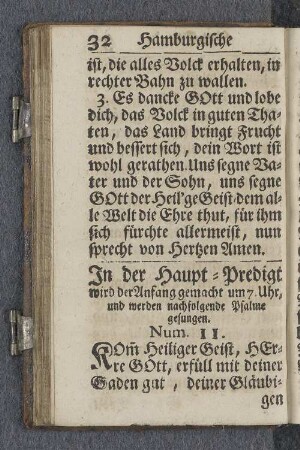 32 Hamburgische
ist, die alles Volck erhalten, in
rechter Bahn zu wallen.
3. Es dancke GOtt und lobe
dich, das Volck in guten Tha-
ten, das Land bringt Frucht
und bessert sich, dein Wort ist
wohl gerathen. Uns segne Va-
ter und der Sohn, uns segne
GOtt der Heil'ge Geist dem al-
le Welt die Ehre thut, für ihm
sich fürchte allermeist, nun
sprecht von Hertzen Amen.
In der Haupt-Predigt
wird der Anfang gemacht um 7. Uhr,
und werden nachfolgende Psalme
gesungen.
Num. II.
KOm̃ Heiliger Geist, HEr-
re GOtt, erfüll mit deiner
Gaden gut, deiner Gläubi-
gen